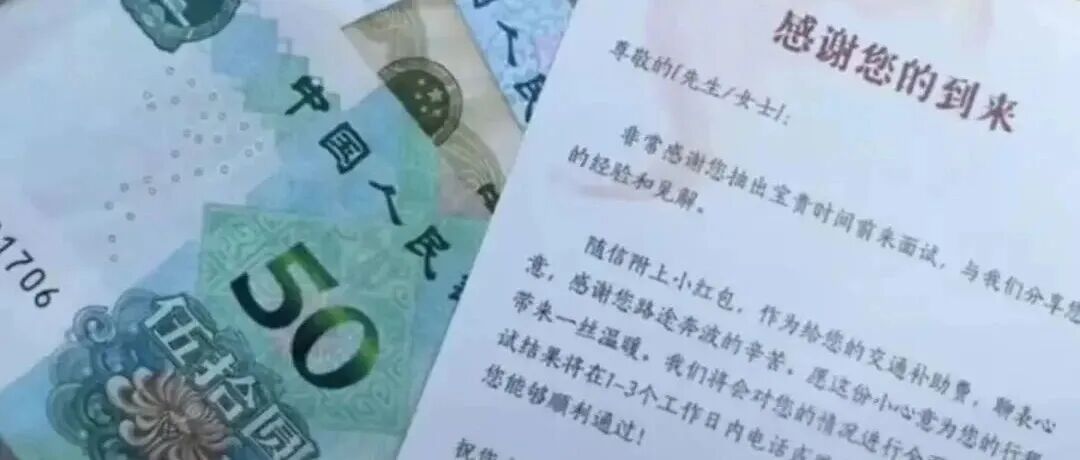 中国人民
50
伍拾圆
1706
感谢您的到来
尊敬的[先生/女士]:
非常感谢您抽出宝贵时间前来面试,与我们分享您
的经验和见解。
随信附上小红包,作为给您的交通补助费,聊表心
意,感谢您路途奔波的辛苦。愿这份小心意为您的行程
带来一丝温暖。我们将会对您的情况进行全面
试结果将在1-3个工作日内电话
您能够顺利通过!
祝您